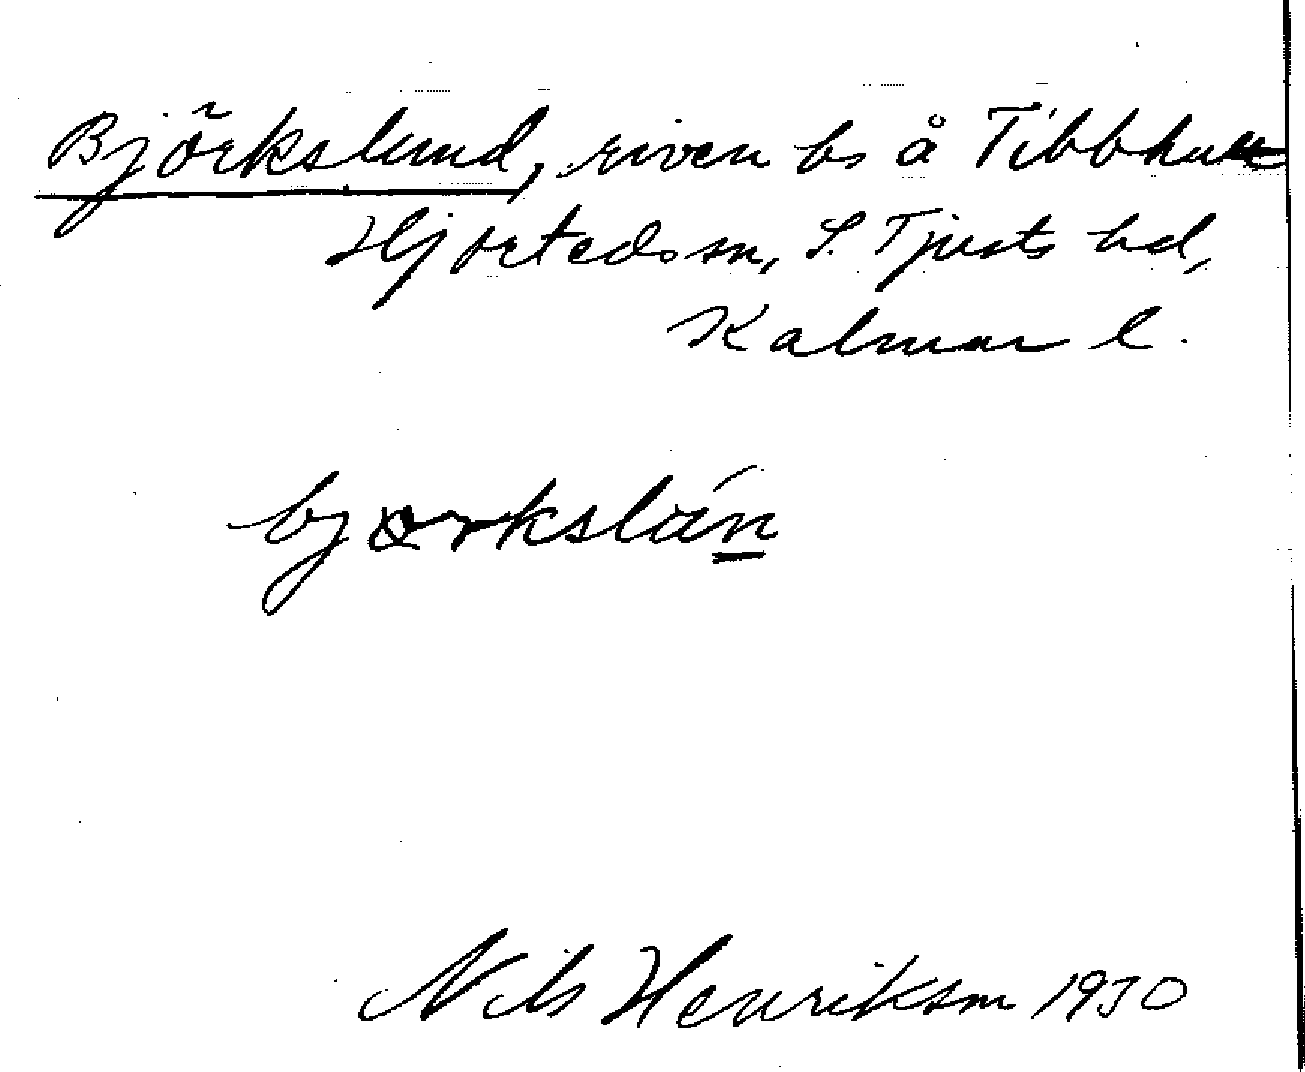 Björkslund, riven bs å Tibbhult
Hjorteds sn, S. Tjusts hd,
Kalmar l.
Nils Henriksson 1930